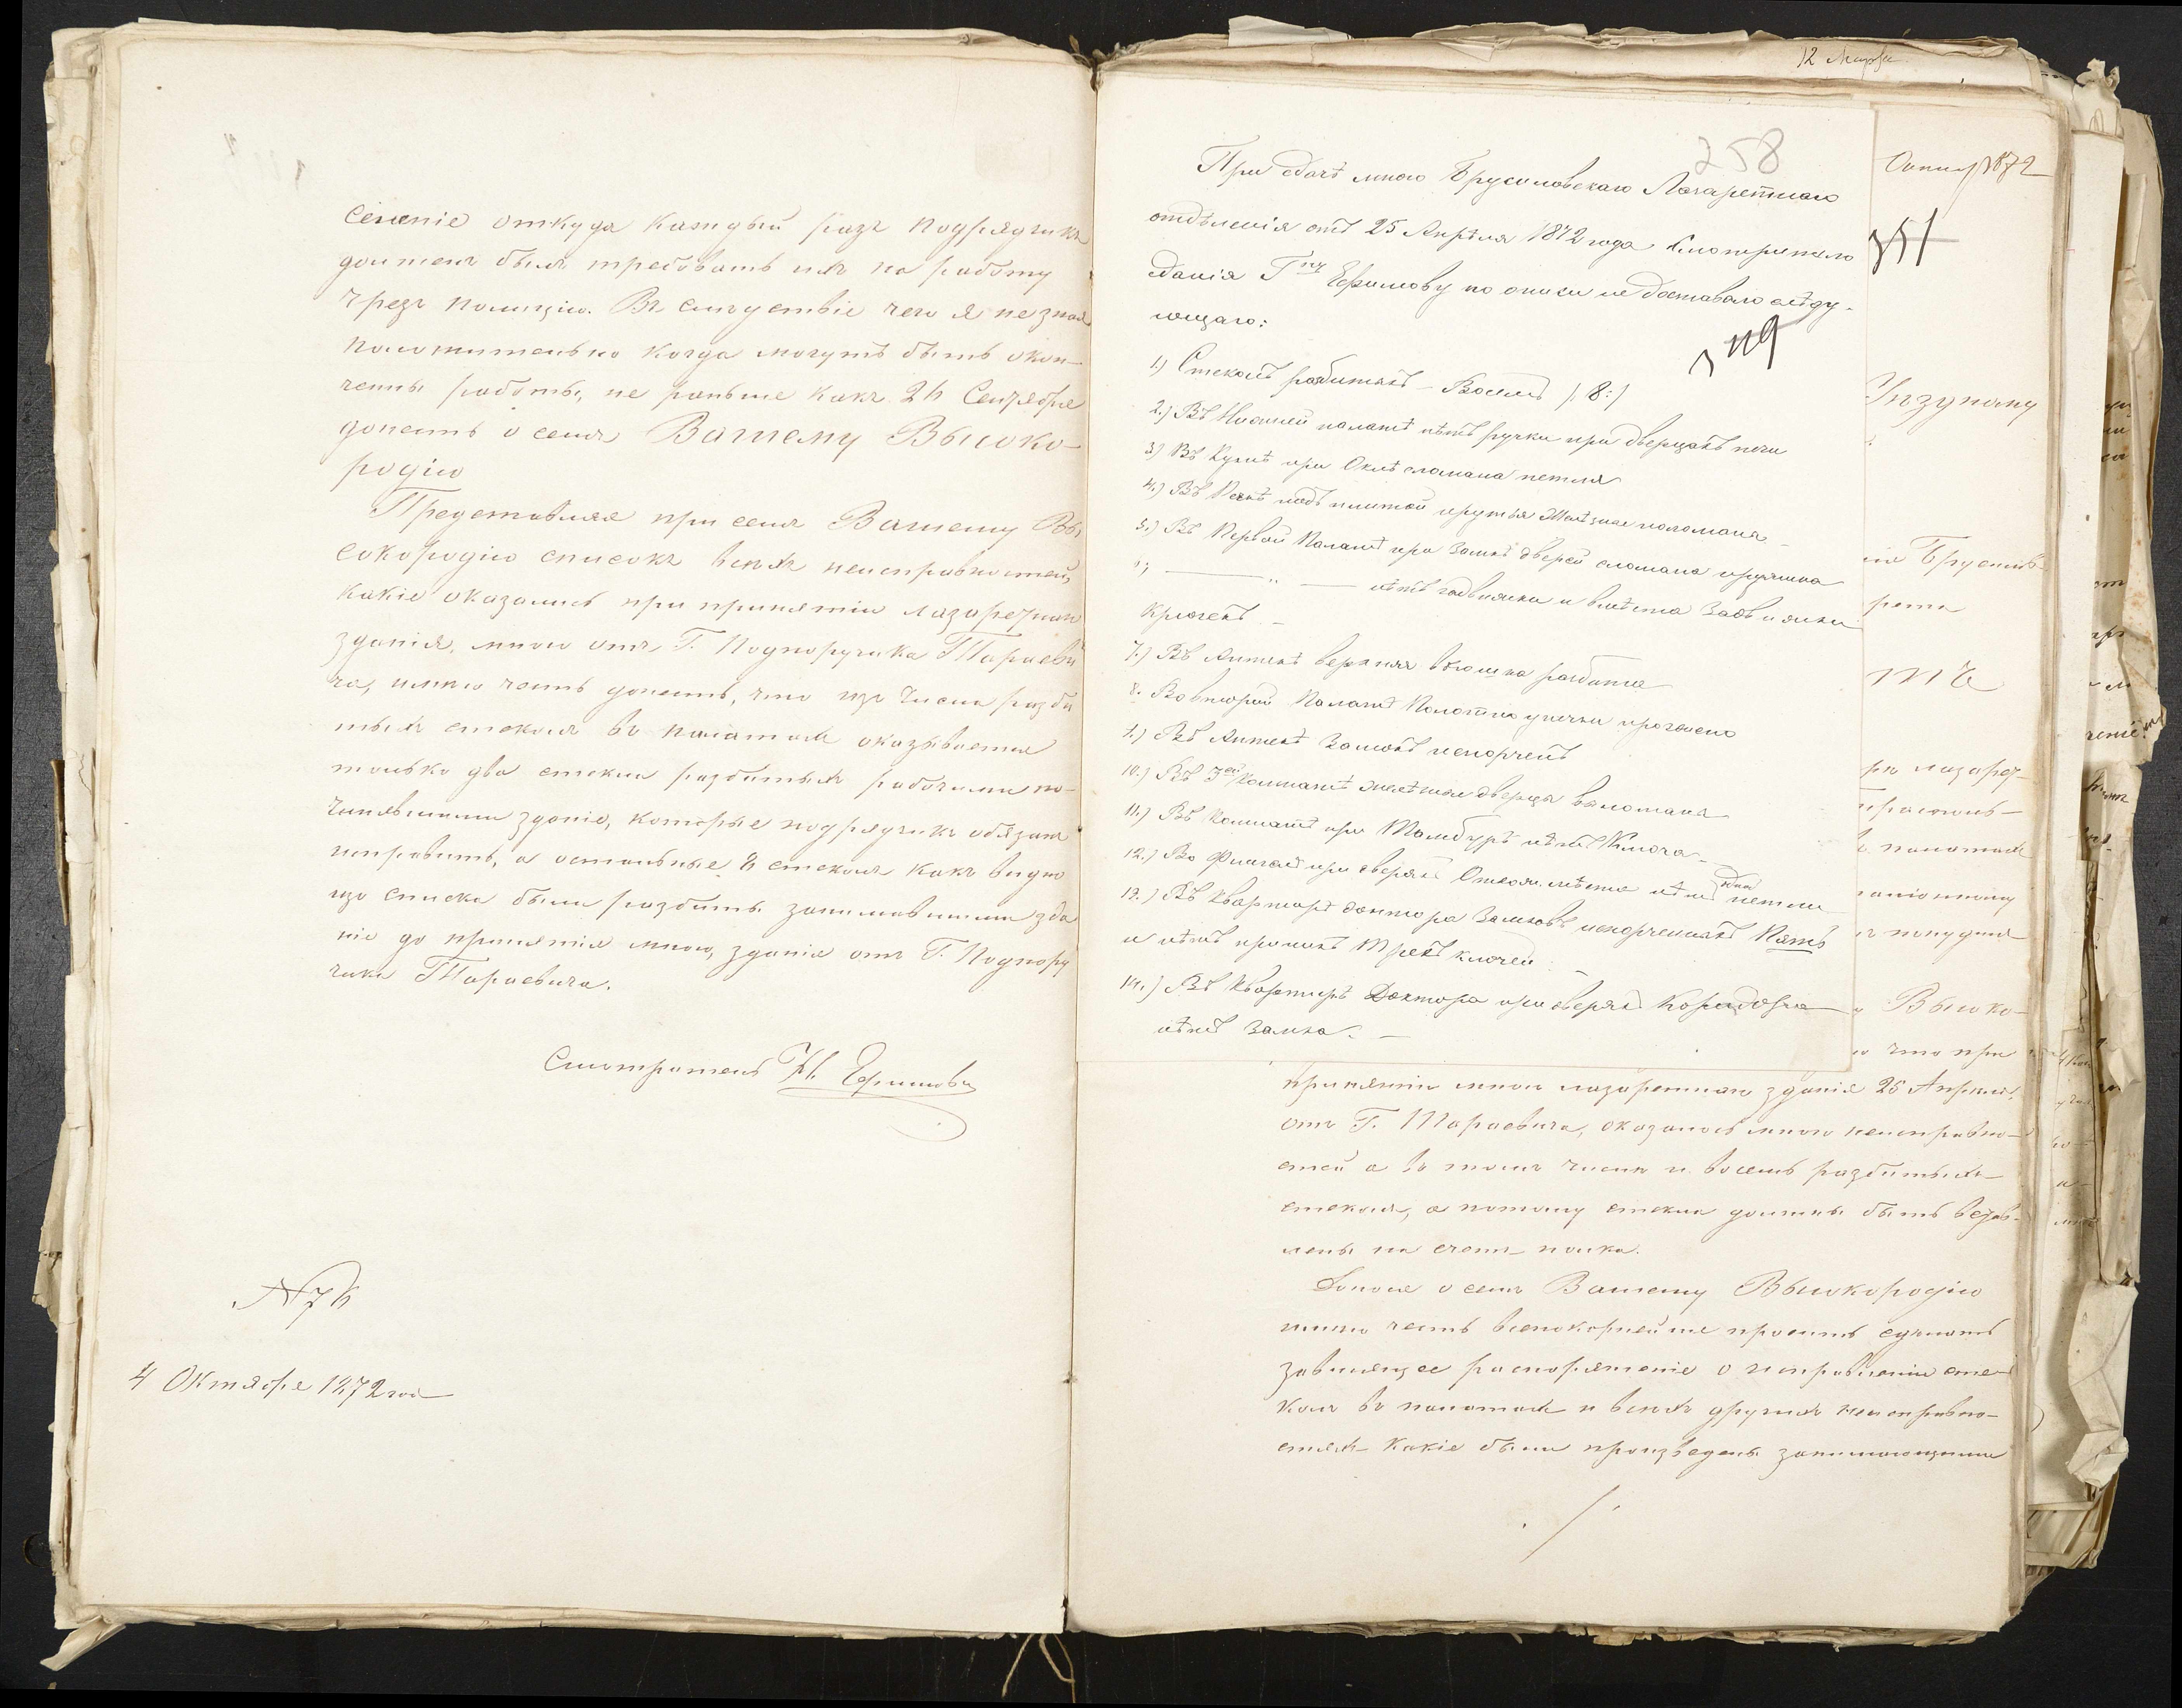 селеніе откуда каждый разъ подрядчикъ
долженъ былъ требовать ихъ на работу
чрезъ полицію. Въ слѣдствіе чего я не зная
положительно когда могутъ быть окон-
чены работы, не раньше какъ 26 Сентября
донесть о семъ Вашему Высоко-
родію
Представляя при семъ Вашему Вы-
сокородію списокъ всѣхъ неисправностей,
какіе оказались при принятіи лазаретнаго
зданія, мною отъ Г. Подпоручика Тараеви
ча, имѣю честь донесть, что изъ числа разби
тыхъ стеколъ въ палатахъ оказывается
только два стекла разбитыхъ рабочими по-
чинявшими зданіе, которые подрядчикъ обязанъ
исправить, а остальные 8 стеколъ какъ видно
изъ списка были разбиты занимавшими зда
ніе до принятія мною, зданія отъ Г. Подпору
чика Тараевича.
Смотритель Н. Ефимовъ
№ 76
4 Октября 1872 год
12 Марта
258
При сдачѣ мною Брусиловскаго Лазаретнаго
отдѣленія отъ 25 Апрѣля 1872 года Смотрителю
зданія Г^ну Ефимову по описи не доставало слѣду-
ющаго:
119
1.) Стеколъ разбитыхъ – Восемь /:8:/
2.) Въ Нижней палатѣ нѣтъ ручки при дверцахъ печи
3) Въ Кухнѣ при Окнѣ сломана петля
4.) Въ Печкѣ подъ плитой прутья Желѣзные поломаны
5.) Въ Первой Палатѣ при Замкѣ дверей сломана пружина
6, — „ — нѣтъ задвижки и вмѣсто Задвижки
Крючекъ –
7.) Въ Аптекѣ верхняя вьюшка разбита
8. Во второй Палатѣ Полотно у печки прогалено
9.) Въ Аптекѣ Замокъ испорченъ
10.) Въ 3^ей Комнатѣ желѣзная дверца выломана
11.) Въ Комнатѣ при Тамбурѣ нѣтъ Ключа –
12.) Во Флигелѣ при дверяхъ Отхож. мѣста нѣтъ одной петли
13.) Въ Квартирѣ доктора Замковъ испорченныхъ Пять
и нѣтъ прочихъ Трехъ ключей –
14.) Въ Квартирѣ Доктора при дверяхъ Коридора
нѣтъ Замка. –
1872
351
Уѣздному
Брусилов-
лазарет-
палатахъ
Высоко-
что при
принятіи мною лазаретнаго зданія 25 Апрѣля
отъ Г. Тараевича, оказалось много неисправно-
стей а въ томъ числѣ и восемь разбитыхъ
стеколъ, а потому стекла должны быть встав-
лены на счетъ полка.
Донося о семъ Вашему Высокородію
имѣю честь всепокорнѣйше просить сдѣлать
зависящее распоряженіе о исправленіи сте-
колъ въ палатахъ и всѣхъ другихъ неисправно-
стяхъ какіе были произведены занимающими
./.